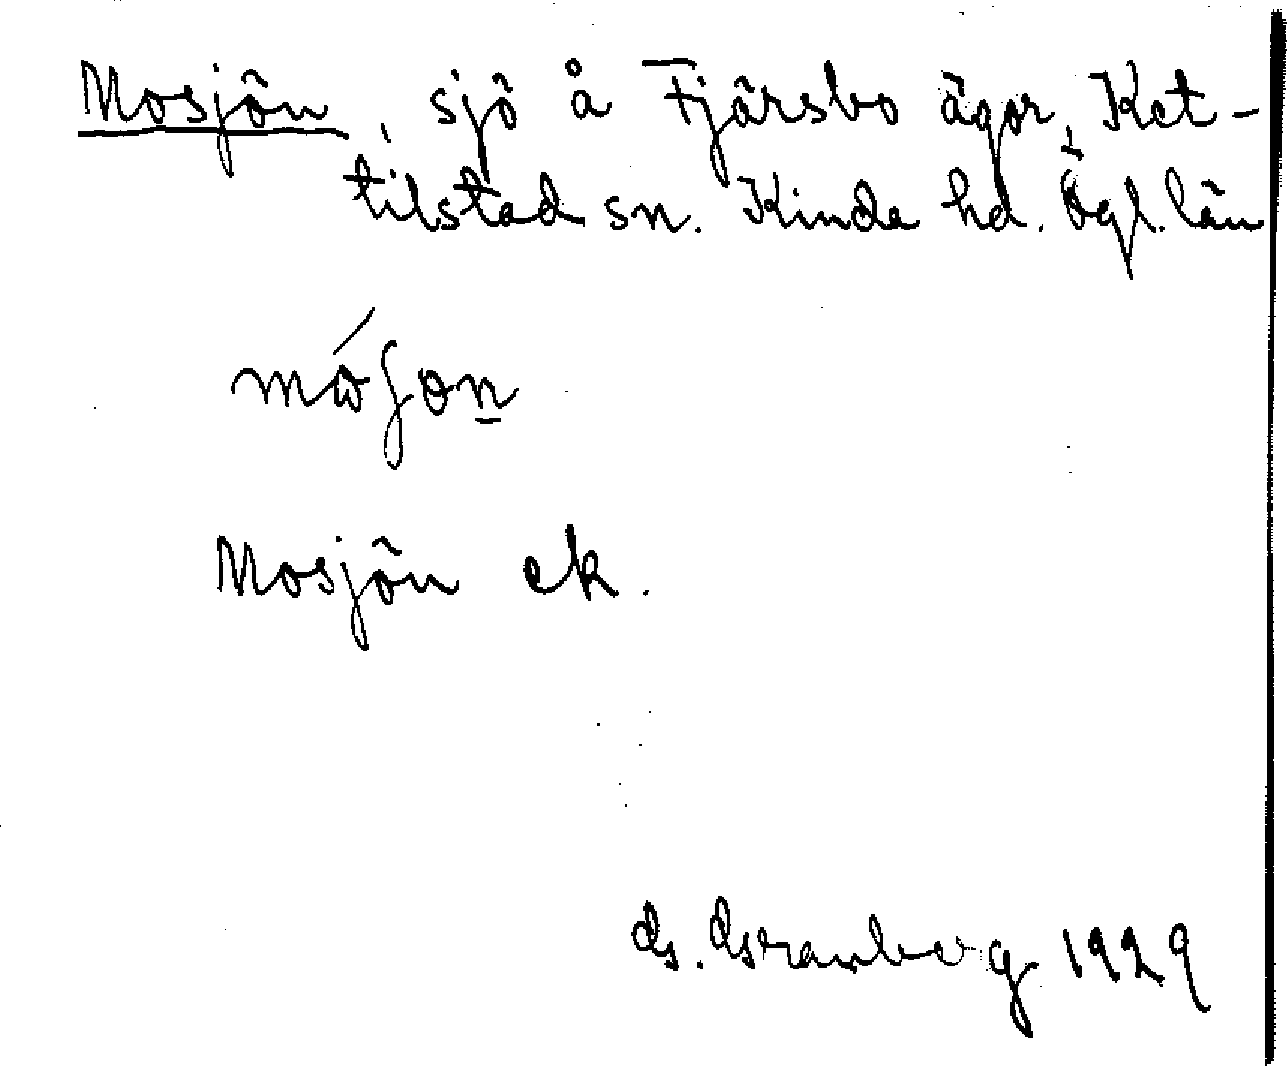 Mosjön, sjö å Fjärsbo ägor, Ket-
tilstad sn. Kinda hd. Ögl. län
Mosjön ek.
G. Granberg 1929